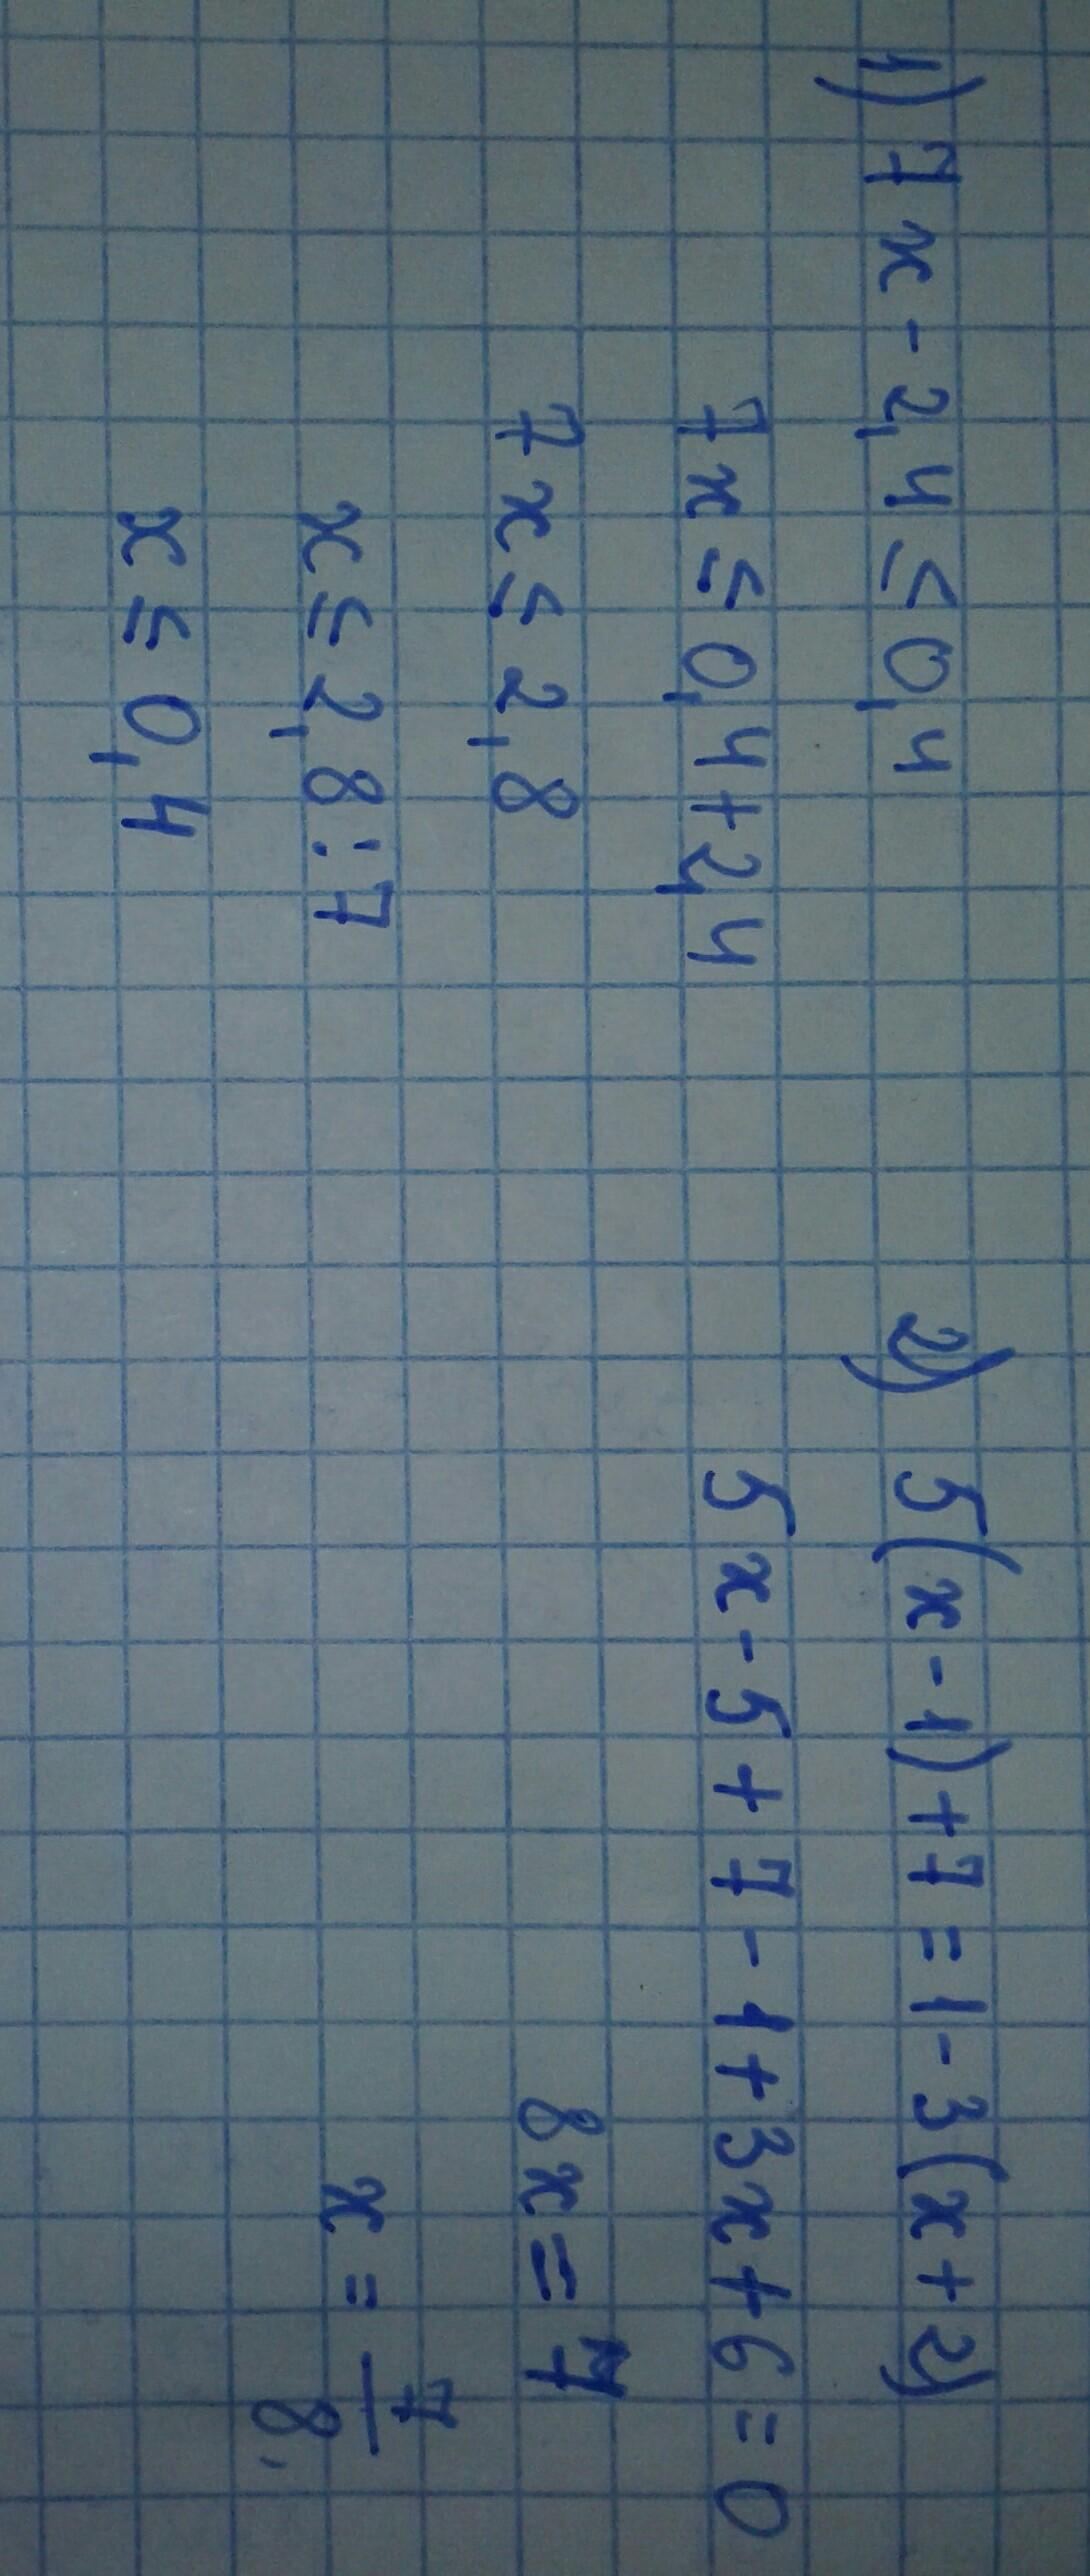 1) 7x - 2,4 ≤ 0,4
7x ≤ 0,4 + 2,4
7x ≤ 2,8
x ≤ 2,8 : 7
x ≤ 0,4
2) 5(x - 1) + 7 = 1 - 3(x + 2)
5x - 5 + 7 - 1 + 3x + 6 = 0
8x = 7
x = 7/8